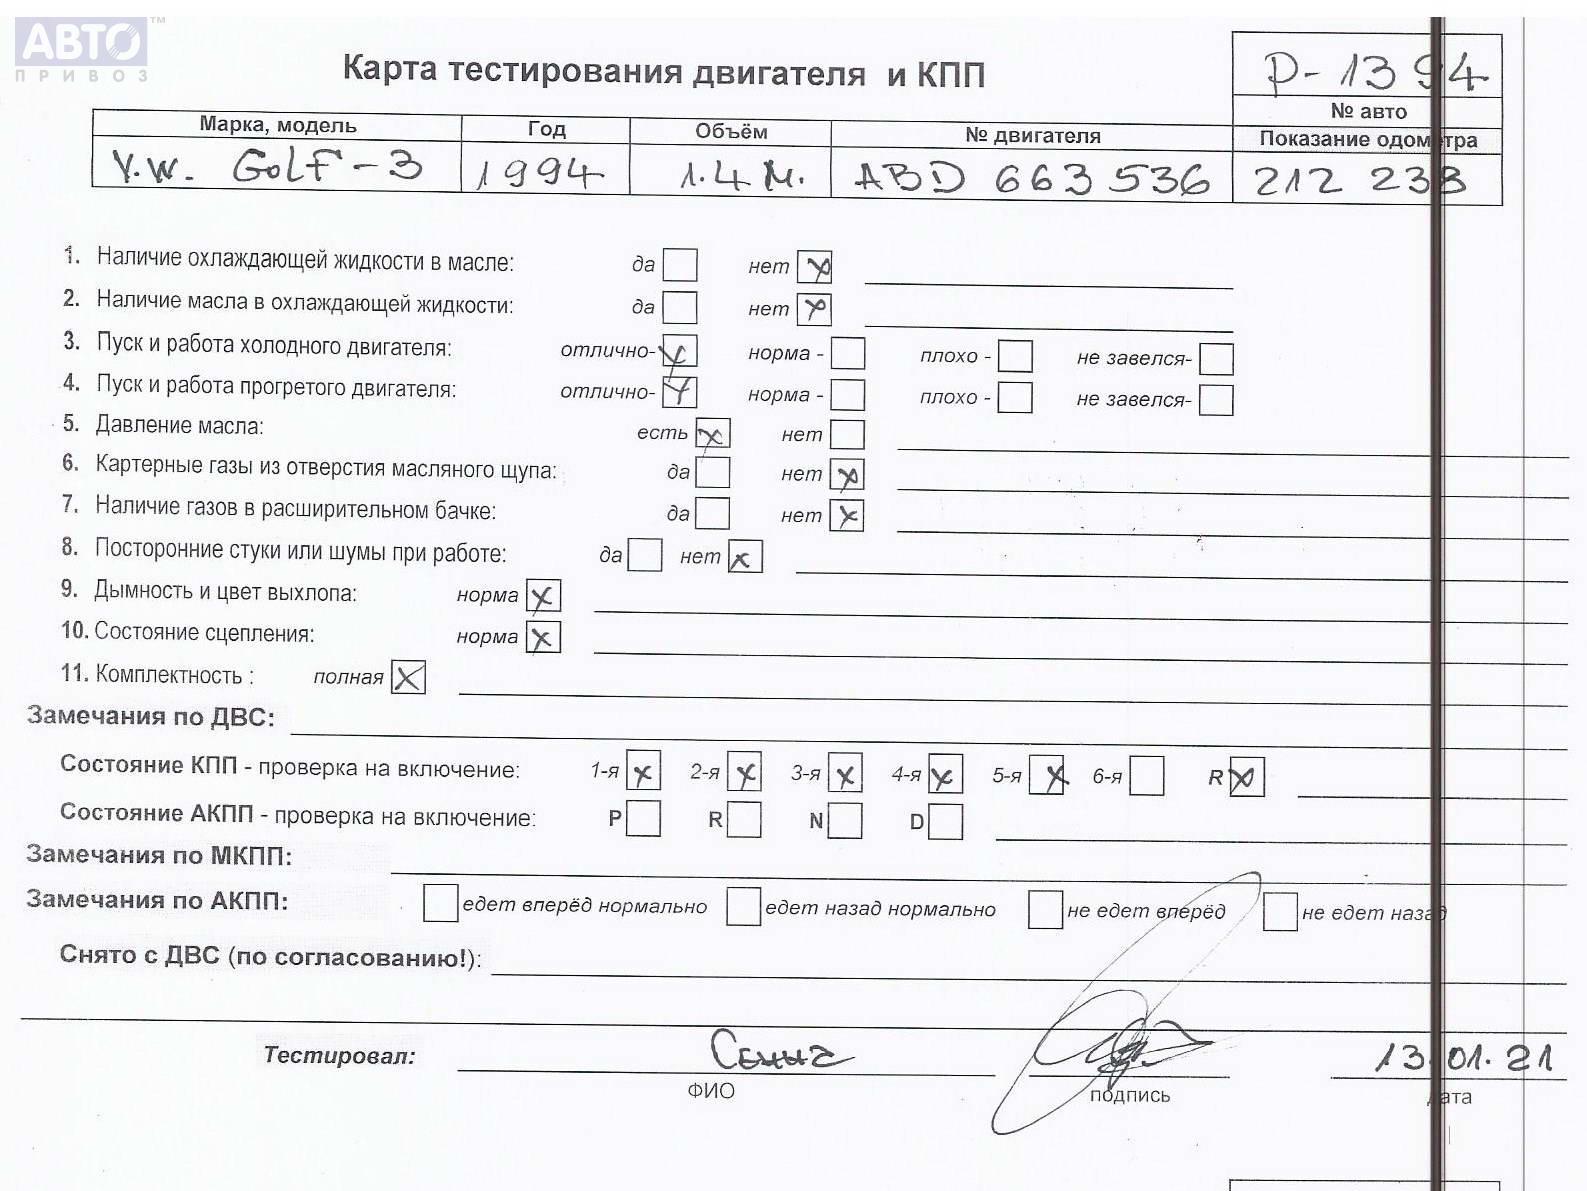 АВТО™
ПРИВОЗ
Карта тестирования двигателя и КПП
P-1394
№ авто
Марка, модель Год Объём № двигателя Показание одометра
V.W. GOLF-3 1994 1.4 М. ABD 663 536 212 238
1. Наличие охлаждающей жидкости в масле: да нет x
2. Наличие масла в охлаждающей жидкости: да нет x
3. Пуск и работа холодного двигателя: отлично- x норма - плохо - не завелся-
4. Пуск и работа прогретого двигателя: отлично- x норма - плохо - не завелся-
5. Давление масла: есть x нет
6. Картерные газы из отверстия масляного щупа: да нет x
7. Наличие газов в расширительном бачке: да нет x
8. Посторонние стуки или шумы при работе: да нет x
9. Дымность и цвет выхлопа: норма x
10. Состояние сцепления: норма x
11. Комплектность : полная x
Замечания по ДВС:
Состояние КПП - проверка на включение: 1-я x 2-я x 3-я x 4-я x 5-я x 6-я R x
Состояние АКПП - проверка на включение: P R N D
Замечания по МКПП:
Замечания по АКПП: едет вперёд нормально едет назад нормально не едет вперёд не едет назад
Снято с ДВС (по согласованию!):
Тестировал: 13.01.21
ФИО подпись дата